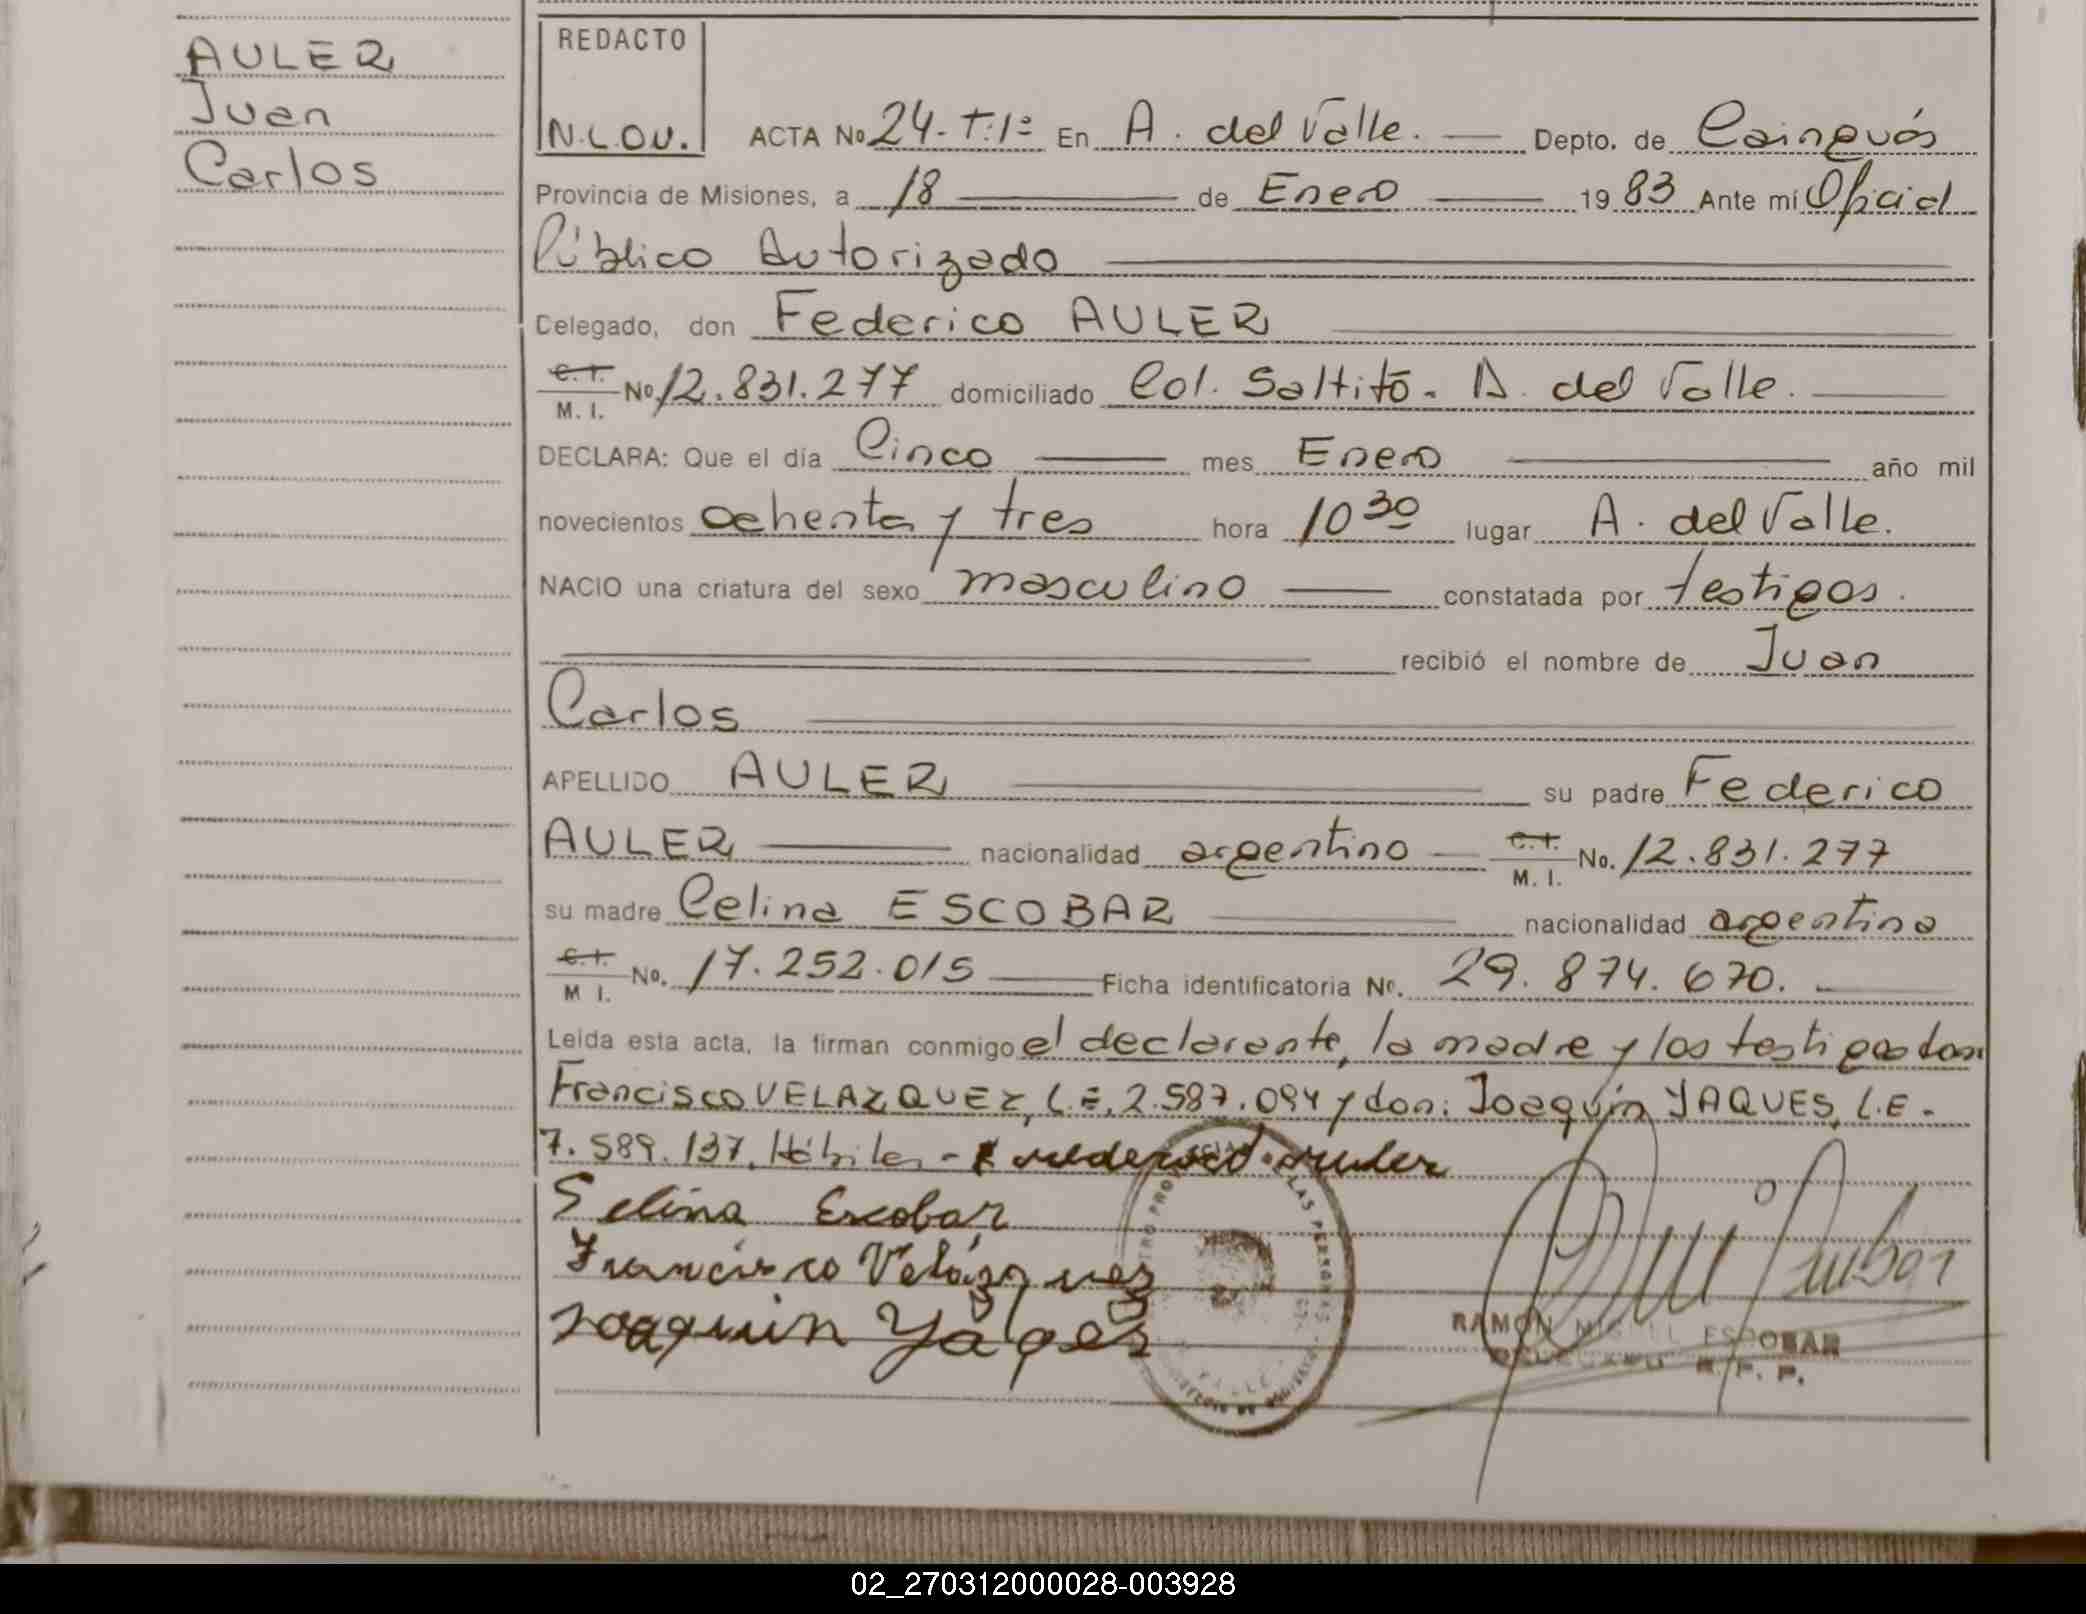 AULER
Juan
Carlos
REDACTO
N.L.OV.
ACTA No 24-T:1º En A. del Valle. Depto. de Cainguás
Provincia de Misiones, a 18 de Enero 1983 Ante mí Oficial
Público Autorizado
Celegado, don Federico AULER
C.I. M. I. No 12.831.277 domiciliado Col. Saltito. A. del Valle.
DECLARA: Que el día Cinco mes Enero año mil
novecientos ochenta y tres hora 10 30 lugar A. del Valle.
NACIO una criatura del sexo masculino constatada por testigos.
recibió el nombre de Juan
Carlos
APELLIDO AULER su padre Federico
AULER nacionalidad argentino C.I. M. I. No. 12.831.277
su madre Celina ESCOBAR nacionalidad argentina
C.I. M I. No. 17.252.015 Ficha identificatoria No. 29.874.670.
Leída esta acta, la firman conmigo el declarante, la madre y los testigos don:
Francisco VELAZQUEZ, L.E. 2.587.094 y don: Joaquín YAQUES, L.E.
7.589.137, Hábiles - Federico Auler
Selina Escobar
Francisco Velázquez
Joaquin Yaques
RAMON MIGUEL ESCOBAR
R. P. P.
02_270312000028-003928